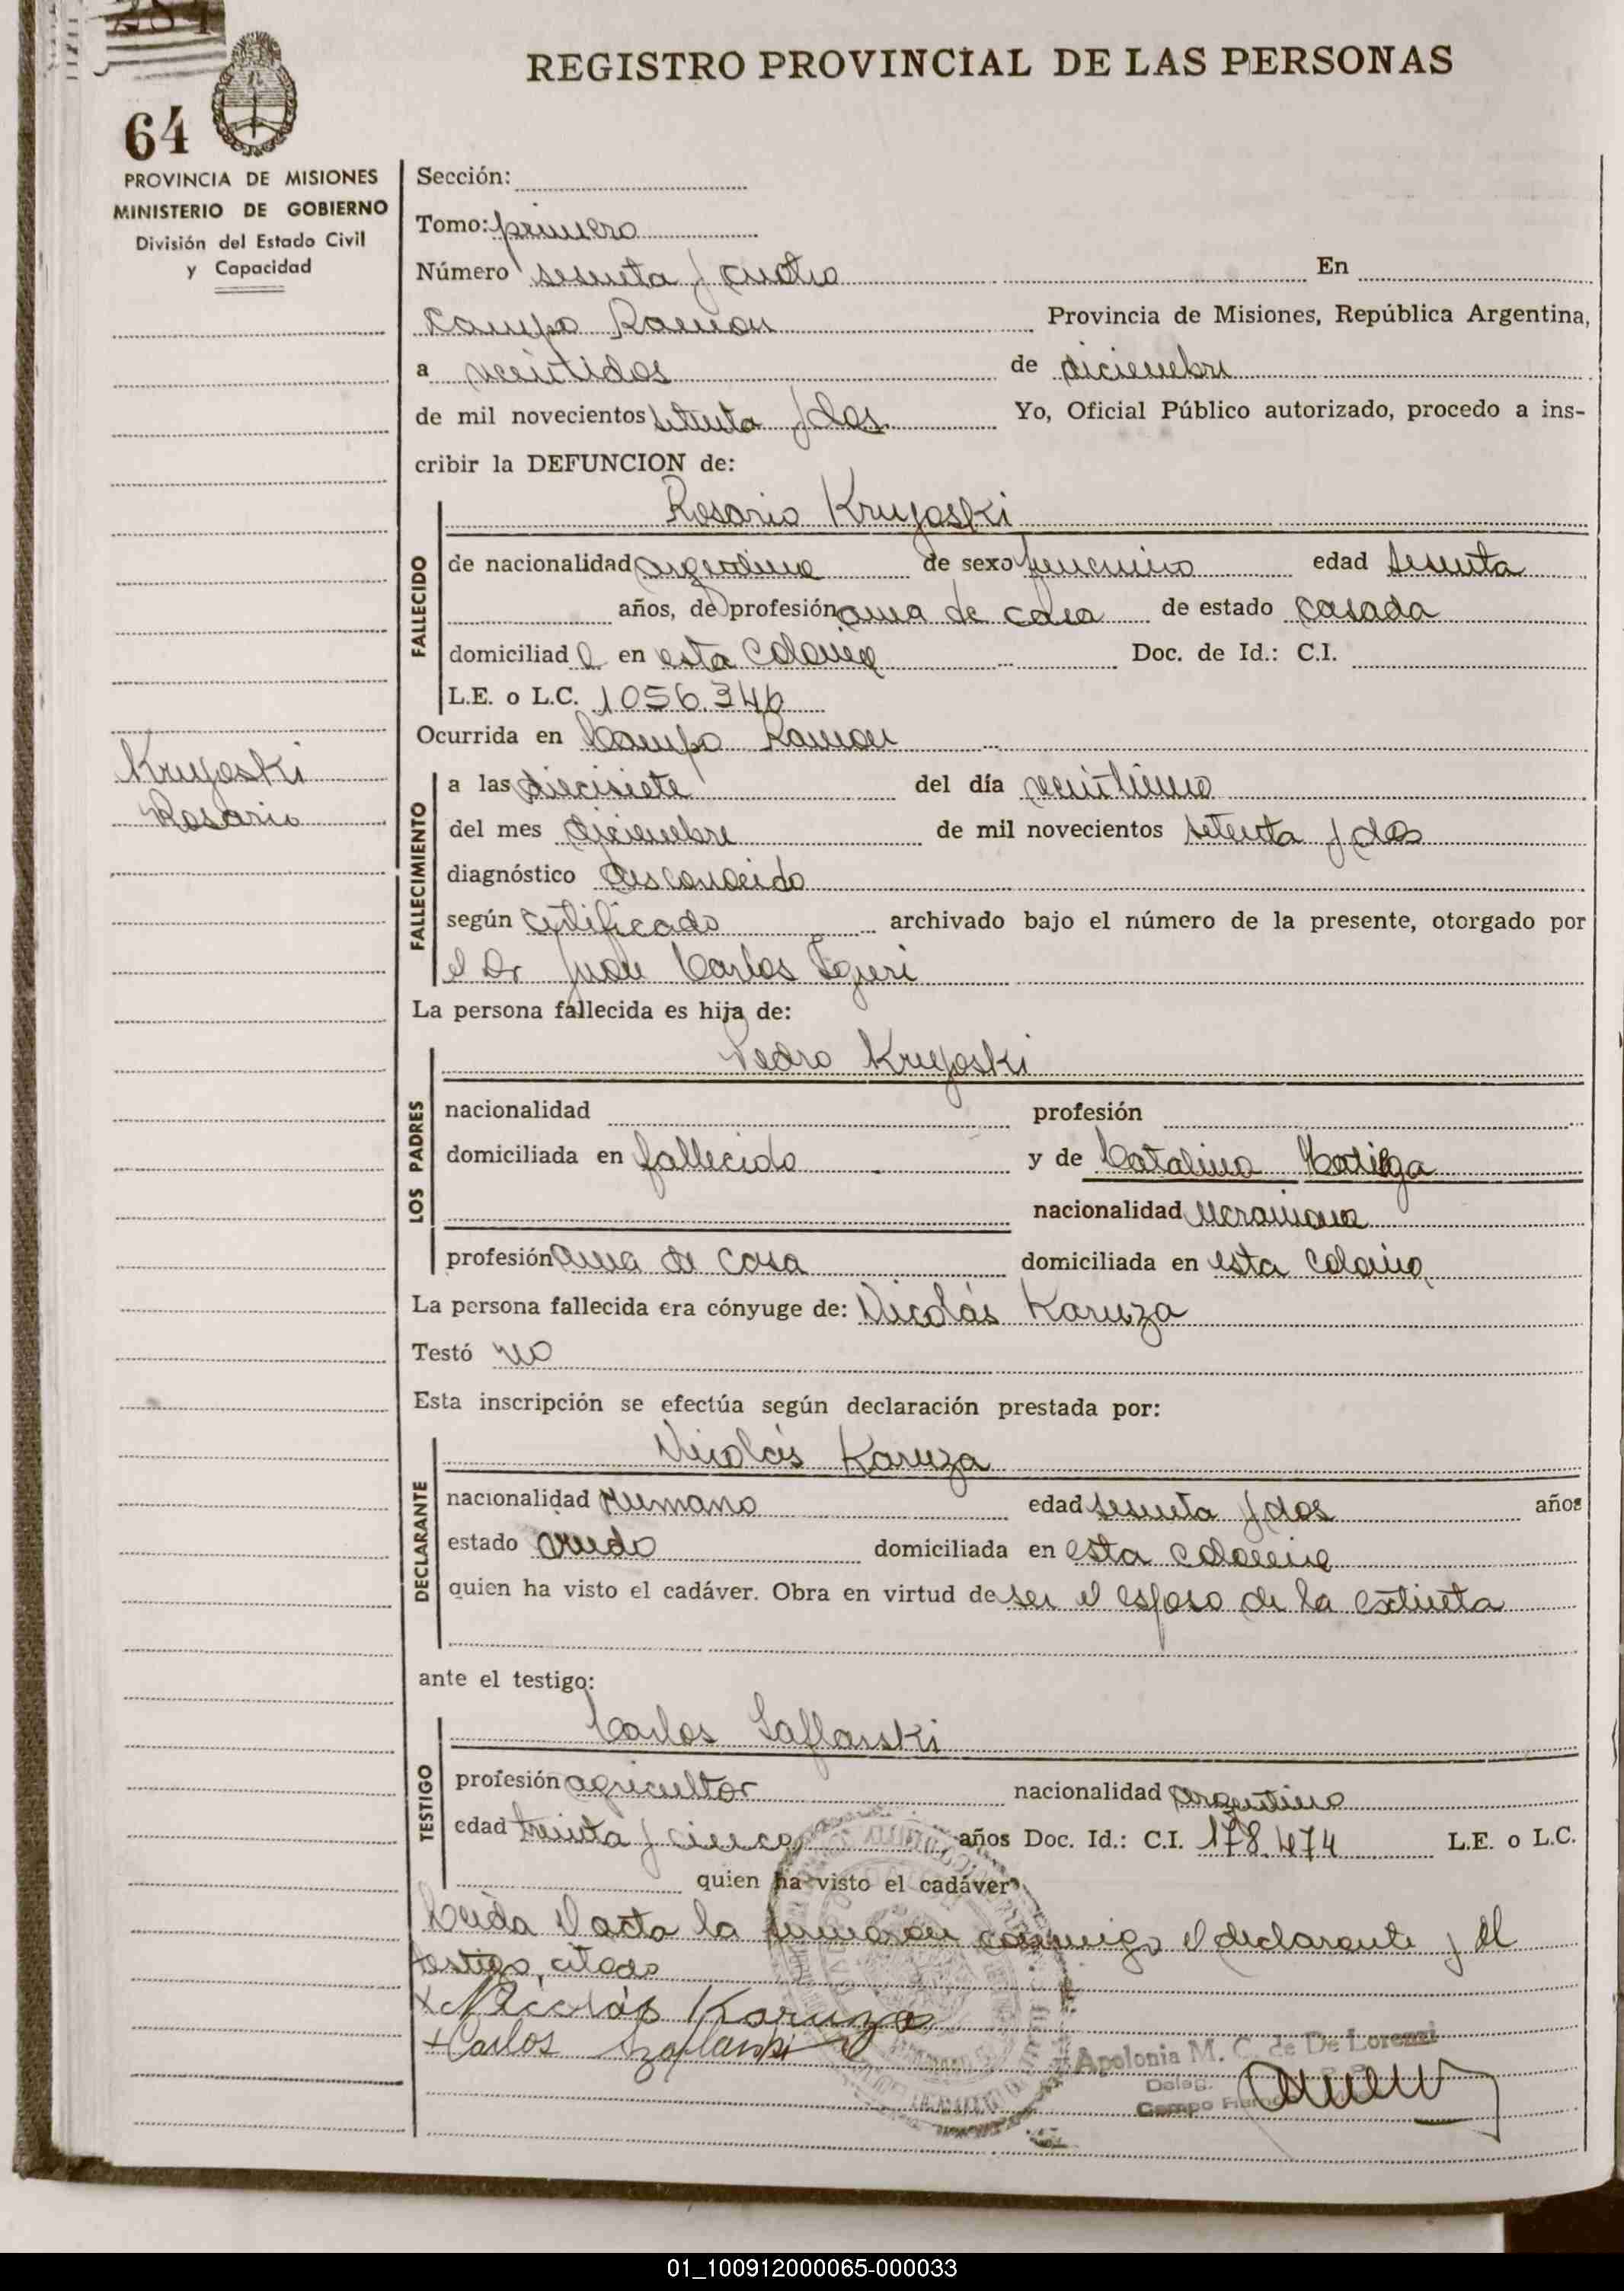 REGISTRO PROVINCIAL DE LAS PERSONAS
64
PROVINCIA DE MISIONES
MINISTERIO DE GOBIERNO
División del Estado Civil
y Capacidad
Sección:
Tomo: primero
Número sesenta y cuatro En
Campo Ramon Provincia de Misiones, República Argentina,
a veintidos de diciembre
de mil novecientos setenta y dos. Yo, Oficial Público autorizado, procedo a ins-
cribir la DEFUNCION de:
FALLECIDO
Rosario Krujoski
de nacionalidad argentina de sexo femenino edad sesenta
años, de profesión ama de casa de estado casada
domiciliad a en esta colonia Doc. de Id.: C.I.
L.E. o L.C. 1056.346
Ocurrida en Campo Ramon
Krujoski
Rosario
FALLECIMIENTO
a las diecisiete del día veintiuno
del mes diciembre de mil novecientos setenta y dos
diagnóstico desconocido
según certificado archivado bajo el número de la presente, otorgado por
el Dr Juan Carlos
La persona fallecida es hija de:
LOS PADRES
Pedro Krujoski
nacionalidad profesión
domiciliada en fallecido y de Catalina
nacionalidad Ucraniana
profesión ama de casa domiciliada en esta colonia
La persona fallecida era cónyuge de: Nicolás Karuza
Testó no
Esta inscripción se efectúa según declaración prestada por:
DECLARANTE
Nicolás Karuza
nacionalidad Rumano edad sesenta y dos años
estado viudo domiciliada en esta colonia
quien ha visto el cadáver. Obra en virtud de ser el esposo de la extinta
ante el testigo:
TESTIGO
Carlos Saflanski
profesión agricultor nacionalidad argentino
edad treinta y cinco años Doc. Id.: C.I. 178.474 L.E. o L.C.
quien ha visto el cadáver
Leida el acta la firmaron conmigo el declarante y el
testigo, citado
x Nicolás Karuza
+ Carlos Szaflanski
Apolonia M. C. de De Lorenzi
Deleg.
Campo
01_100912000065-000033